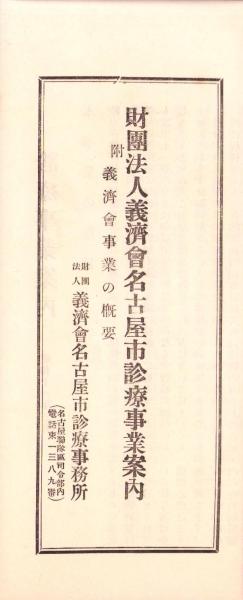 財團法人義濟會名古屋市診療事業案內
附 義濟會事業の概要
財團法人 義濟會名古屋市診療事務所
(名古屋聯隊區司令部內
電話東一三八九番)